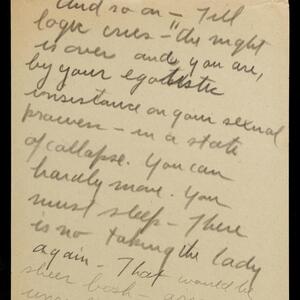 and so on – Till
logic cries – "the night
is over and you are,
by your egotistic
insistance on your sexual
prowess – in a state
of collapse. You can
hardly move. You
must sleep – There
is no taking the lady
again – That would be
sheer bosh –